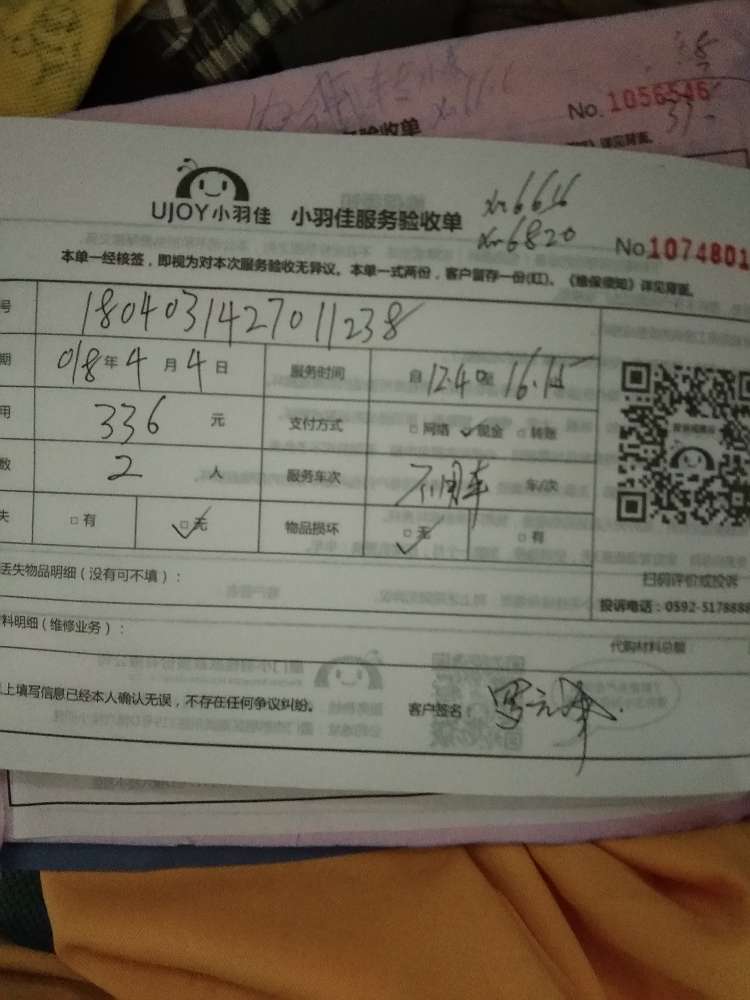 No. 1056546
验收单
详见背面。
UJOY小羽佳 小羽佳服务验收单
xm6616
xm6820
No 1074801
本单一经核签，即视为对本次服务验收无异议。本单一式两份，客户留存一份(红)。《维保须知》详见背面。
号 1804031427011238
期 018年4月4日 服务时间 自12.40至16.15
用 336 元 支付方式 □网络 ✓现金 □转账
数 2 人 服务车次 不用车 车/次
失 □有 □无 ✓ 物品损坏 □无 ✓ □有
丢失物品明细（没有可不填）：
扫码评价或投诉
投诉电话：0592-5178888
料明细（维修业务）：
代购材料总额
上填写信息已经本人确认无误，不存在任何争议纠纷。 客户签名：